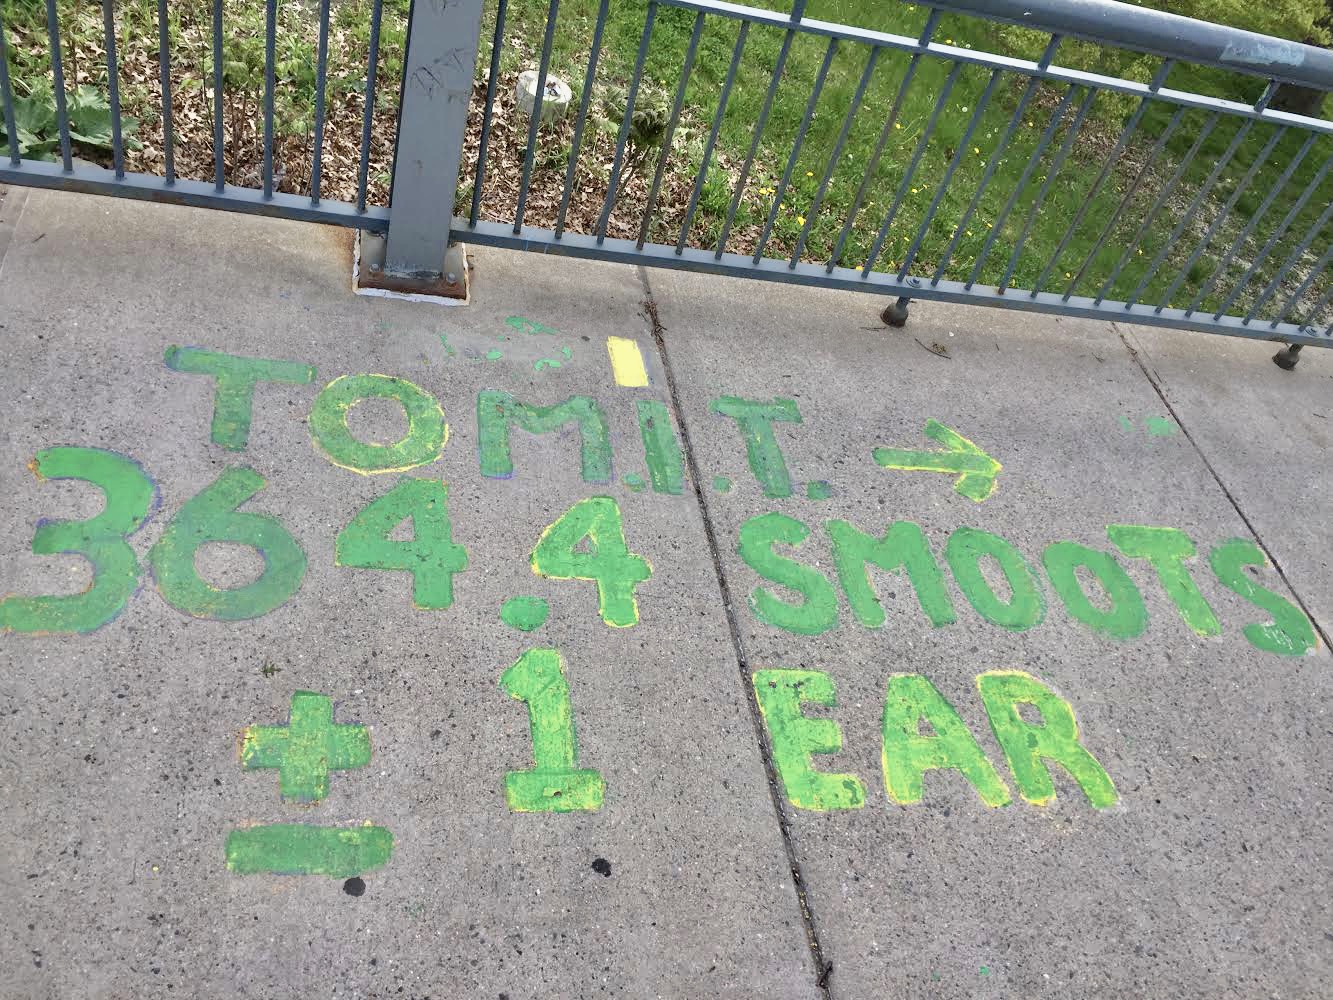 TO M.I.T. →
364.4 SMOOTS
± 1 EAR